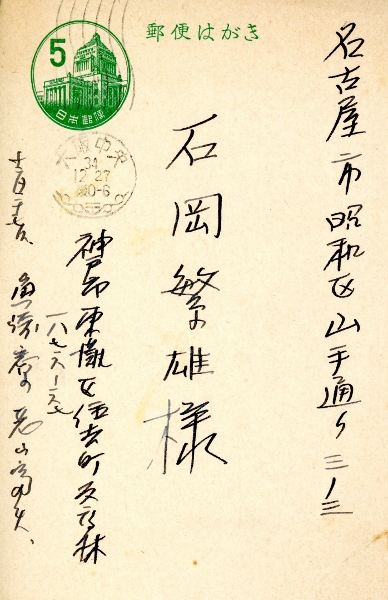 郵便はがき
5
日本郵便
中央
34
12.27
0-6
名古屋市昭和区山手通り三ノ三
石岡繁雄様
神戸市東灘区住吉町反高林
一八七六ー一六七